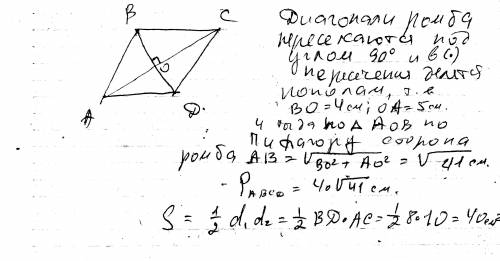 B C
A D.
Диагонали ромба
пересекаются под
углом 90° и в (·)
пересечения делятся
пополам, т.е
BO = 4см; OA = 5см.
и тогда по Δ AOB по
Пифагору сторона
ромба AB = √BO² + AO² = √41 см.
P ABCD = 4·√41 см.
S = 1/2 d₁ d₂ = 1/2 BD·AC = 1/2 8·10 = 40см²